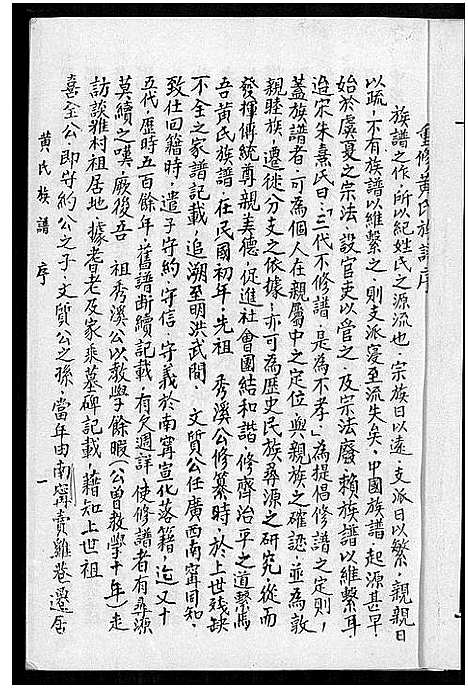 重修黃氏族譜序
族譜之作，所以紀姓氏之源流也，宗族日以遠，支派日以繁，親親日
以疏，不有族譜以維繫之，則支派寖至流失矣，中國族譜，起源甚早，
始於虞夏之宗法，設官吏以管之，及宗法廢，賴族譜以維繫耳
迨宋朱熹氏曰「三代不修譜，是為不孝」為提倡修譜之定則，
蓋族譜者，可為個人在親屬中之定位，與親族之確認，並為敦
親睦族，遷徙分支之依據，亦可為歷史民族尋源之研究，從而
發揮傳統尊親美德，促進社會團結和諧，修齊治平之道繫焉
吾黃氏族譜，在民國初年，先祖 秀溪公修纂時，於上世残缺
不全之家譜記載，追溯至明洪武間，文質公任廣西南甯同知，
致仕回籍時，遣子守約，守信，守義於南甯宣化落籍，迄又十
五代，歷時五百餘年，舊譜断續記載，有欠週詳，使修譜者有尋源
莫續之嘆，厥後吾 祖秀溪公以教學餘暇(公曾教學十年)走
訪談雅村祖居地，據耆老及家乘墓碑記載，藉知上世祖
喜全公，即守約公之子，文質公之孫，當年由南甯賣雞巷遷居
黃氏族譜 序 一